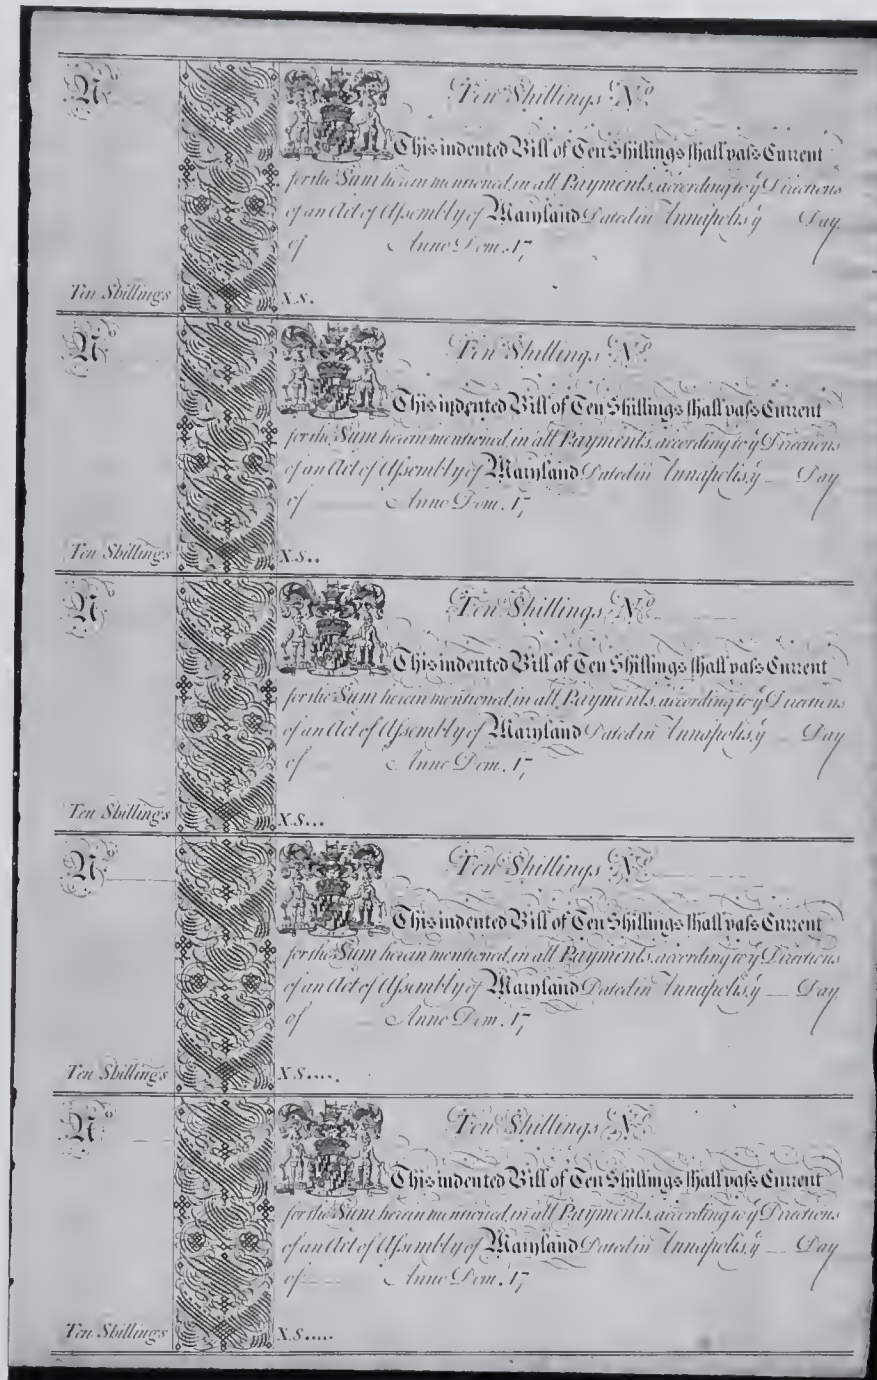 No Ten Shillings No
This indented Bill of Ten Shillings shall pass Current
for the Sum herein mentioned, in all Payments, according to ye Directions
of an Act of Assembly of Maryland Dated in Annapolis, ye Day
of Anno Dom. 17
Ten Shillings X.S.
No Ten Shillings No
This indented Bill of Ten Shillings shall pass Current
for the Sum herein mentioned, in all Payments, according to ye Directions
of an Act of Assembly of Maryland Dated in Annapolis, ye Day
of Anno Dom. 17
Ten Shillings X.S..
No Ten Shillings No
This indented Bill of Ten Shillings shall pass Current
for the Sum herein mentioned, in all Payments, according to ye Directions
of an Act of Assembly of Maryland Dated in Annapolis, ye Day
of Anno Dom. 17
Ten Shillings X.S...
No Ten Shillings No
This indented Bill of Ten Shillings shall pass Current
for the Sum herein mentioned, in all Payments, according to ye Directions
of an Act of Assembly of Maryland Dated in Annapolis, ye Day
of Anno Dom. 17
Ten Shillings X.S....
No Ten Shillings No
This indented Bill of Ten Shillings shall pass Current
for the Sum herein mentioned, in all Payments, according to ye Directions
of an Act of Assembly of Maryland Dated in Annapolis, ye Day
of Anno Dom. 17
Ten Shillings X.S.....